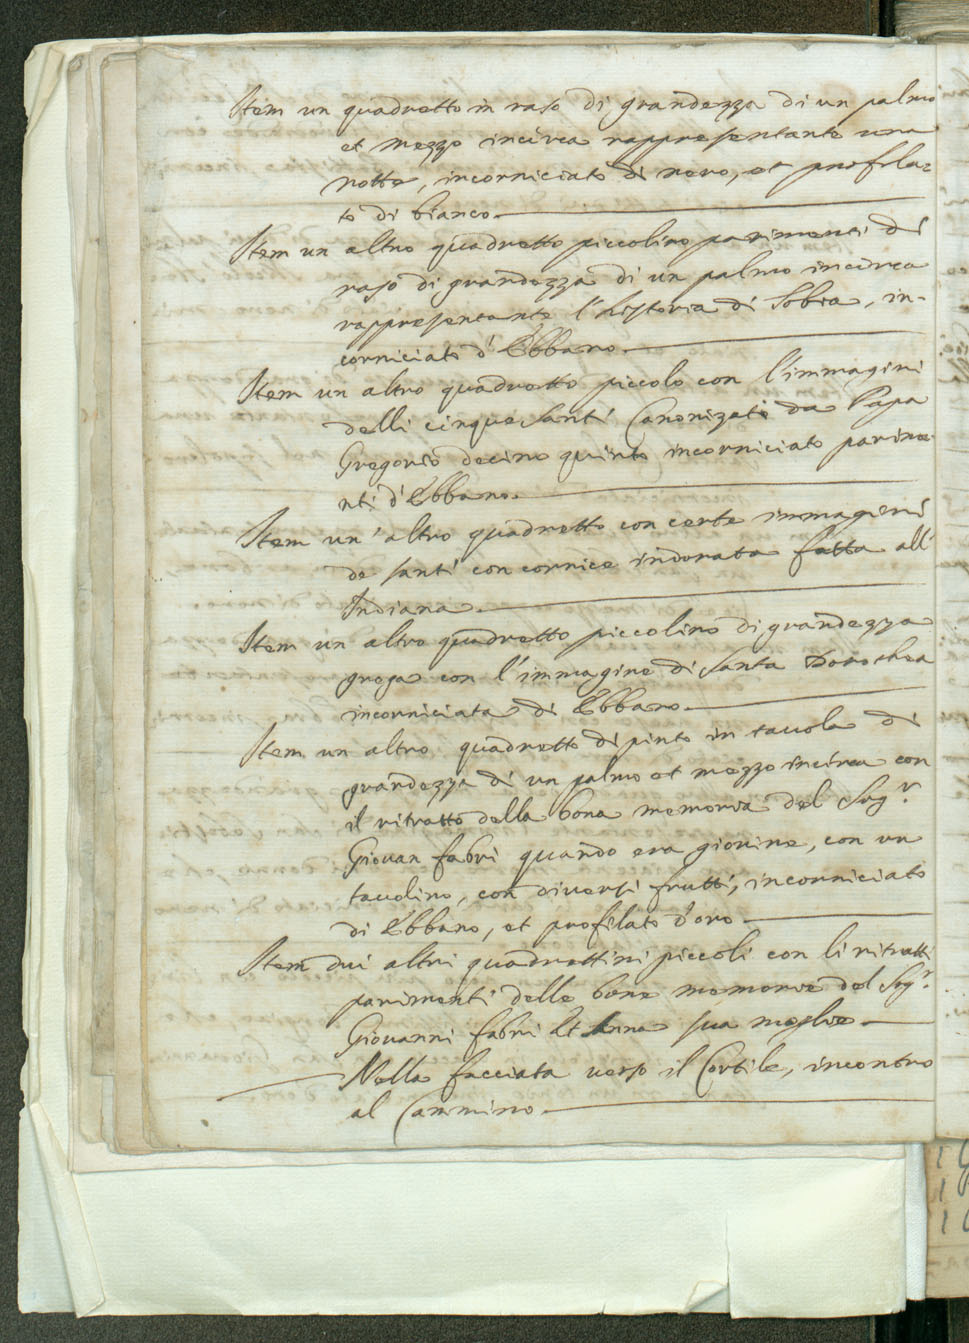 Item un quadretto in raso di grandezza di un palmo
et mezzo incirca rappresentante una
notte, incorniciato di nero, et profila=
to di bianco.
Item un altro quadretto piccolino parimenti di
raso di grandezza di un palmo incirca
rappresentante l'historia di Tobia, in-
corniciato d'Ebbano.
Item un altro quadretto piccolo con l'immagini
delli cinque Santi Canonizati da Papa
Gregorio decimo quinto incorniciato parime-
nti d'Ebbano.
Item un'altro quadretto con certe immagini
de santi con cornice indorata fatta all'
Indiana.
Item un altro quadretto piccolino di grandezza
grega con l'immagine di Santa Dorothea
incorniciata di Ebbano.
Item un altro quadretto dipinto in tavola di
grandezza di un palmo et mezzo incirca con
il ritratto della bona memoria del Sigr.
Giovan fabri quando era giovine, con un
tavolino, con diversi frutti, incorniciato
di Ebbano, et profilato d'oro
Item dui altri quadrettini piccoli con li ritratti
parimenti delle bone memorie del Sigr.
Giovanni fabri Et Anna sua moglie
Nella facciata verso il Cortile, incontro
al Cammino.